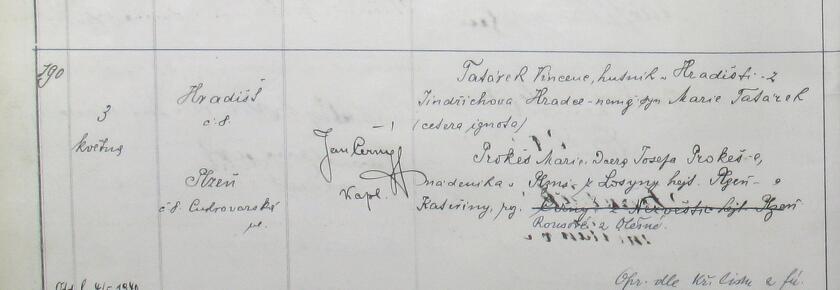 190
3
května
Hradišť
č. 8.
Plzeň
č. 8. Cukrovarská
ul.
– !
Jan Černý
kapl.
Tatárek Vincenc, hutník v Hradišti - z
Jindřichova Hradce - nemž. syn Marie Tatárek
(cetera ignota)
Prokeš Marie, dcera Josefa Prokeš-e,
nádeníka v Plzni z Losyny hejt. Plzeň - a
Kateřiny, rz. Černý z Nezvěstic hejt. Plzeň
Rousové z Olešné.
Opr. dle kř. listu a fú.